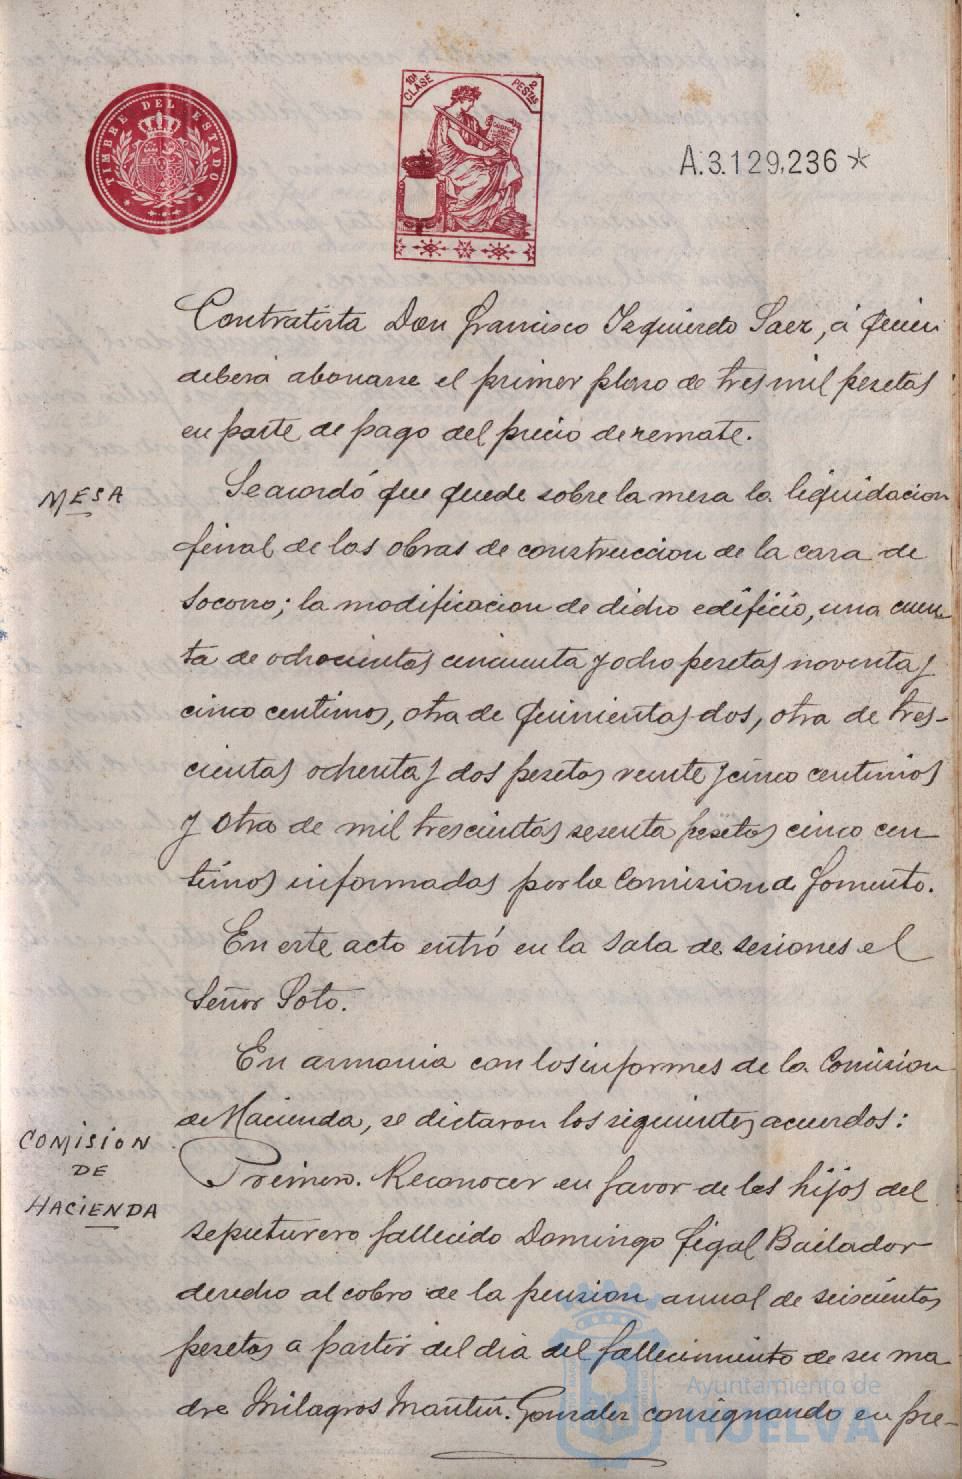 TIMBRE DEL ESTADO
10ª CLASE 2 PESETAS
A.3.129,236 *
Contratista Don Francisco Izquierdo Saez, á quien
deberá abonarse el primer plazo de tres mil pesetas
en parte de pago del precio de remate.
MESA
Se acordó que quede sobre la mesa la liquidacion
final de las obras de construccion de la casa de
Socorro; la modificacion de dicho edificio, una cuen-
ta de ochocientas cincuenta y ocho pesetas noventa y
cinco centimos, otra de quinientas dos, otra de tres-
cientas ochenta y dos pesetas veinte y cinco centimos
y otra de mil trescientas sesenta pesetas cinco cen
timos informadas por la Comision de Fomento.
En este acto entró en la sala de sesiones el
Señor Soto.
En armonia con los informes de la Comision
de Hacienda, se dictaron los siguientes acuerdos:
COMISION
DE
HACIENDA
Primero. Reconocer en favor de los hijos del
sepulturero fallecido Domingo Figal Bailador
derecho al cobro de la pension anual de seiscientas
pesetas a partir del dia del fallecimiento de su ma
dre Milagros Martin Gonzalez consignando en pre-
Ayuntamiento de
HUELVA